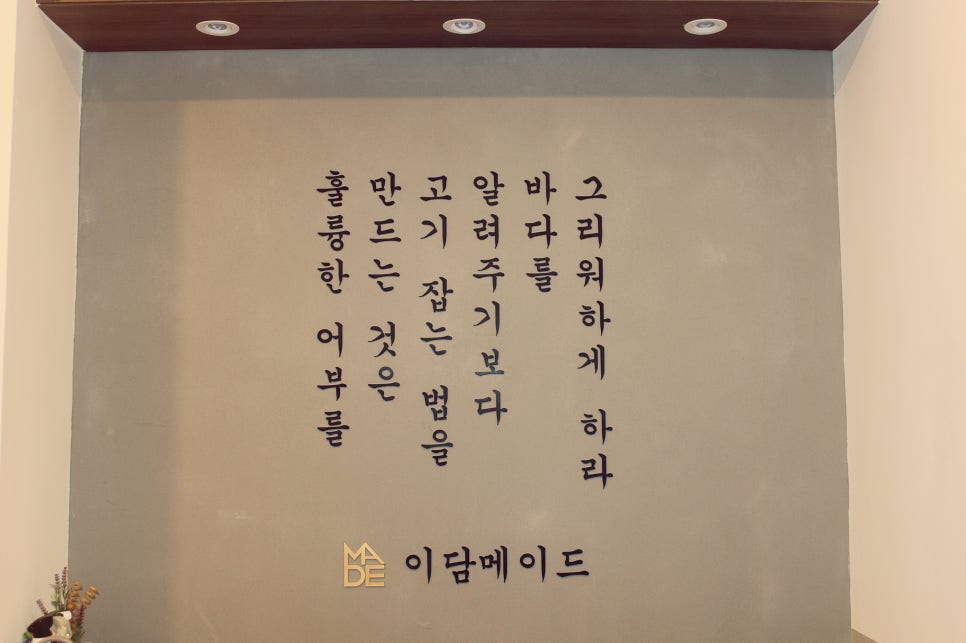 훌륭한 어부를
만드는 것은
고기 잡는 법을
알려주기보다
바다를
그리워하게 하라
MADE
이담메이드